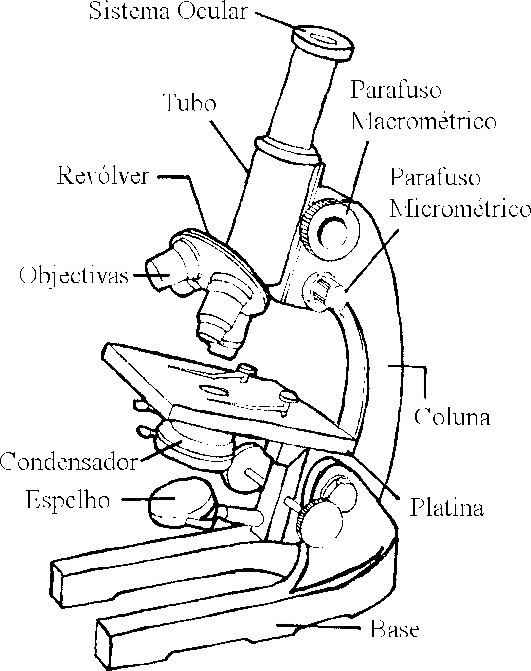 Sistema Ocular
Tubo
Parafuso
Macrométrico
Revólver
Parafuso
Micrométrico
Objectivas
Coluna
Condensador
Espelho
Platina
Base